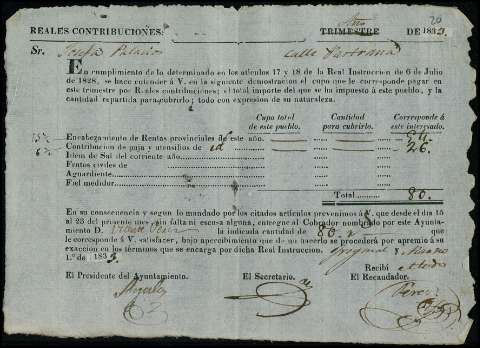 20
REALES CONTRIBUCIONES: TRIMESTRE DE 183
Sr. Josefa Palacios Calle
En cumplimiento de lo determinado en los artículos 17 y 18 de la Real Instruccion de 6 de Julio
de 1828, se hace entender á V. en la siguiente demostracion el cupo que le corresponde pagar en
este trimestre por Reales contribuciones; el total importe del que se ha impuesto á este pueblo, y la
cantidad repartida para cubrirlo; todo con expresion de su naturaleza.
Cupo total de este pueblo. Cantidad para cubrirlo. Corresponde á este interesado.
Encabezamiento de Rentas provinciales de este año. 54
Contribucion de paja y utensilios de id 26.
Idem de Sal del corriente año
Frutos civiles de
Aguardiente
Fiel medidor
Total 80.
En su consecuencia y segun lo mandado por los citados artículos prevenimos á V. que desde el dia 15
al 25 del presente mes, sin falta ni escusa alguna, entregue al Cobrador nombrado por este Ayunta-
miento D. la indicada cantidad de 80 que
le corresponde á V. satisfacer, bajo apercibimiento que de no hacerlo se procederá por apremio á su
exaccion en los términos que se encarga por dicha Real Instruccion.
1.º de 183
Recibí
El Presidente del Ayuntamiento. El Secretario. El Recaudador.
Perez